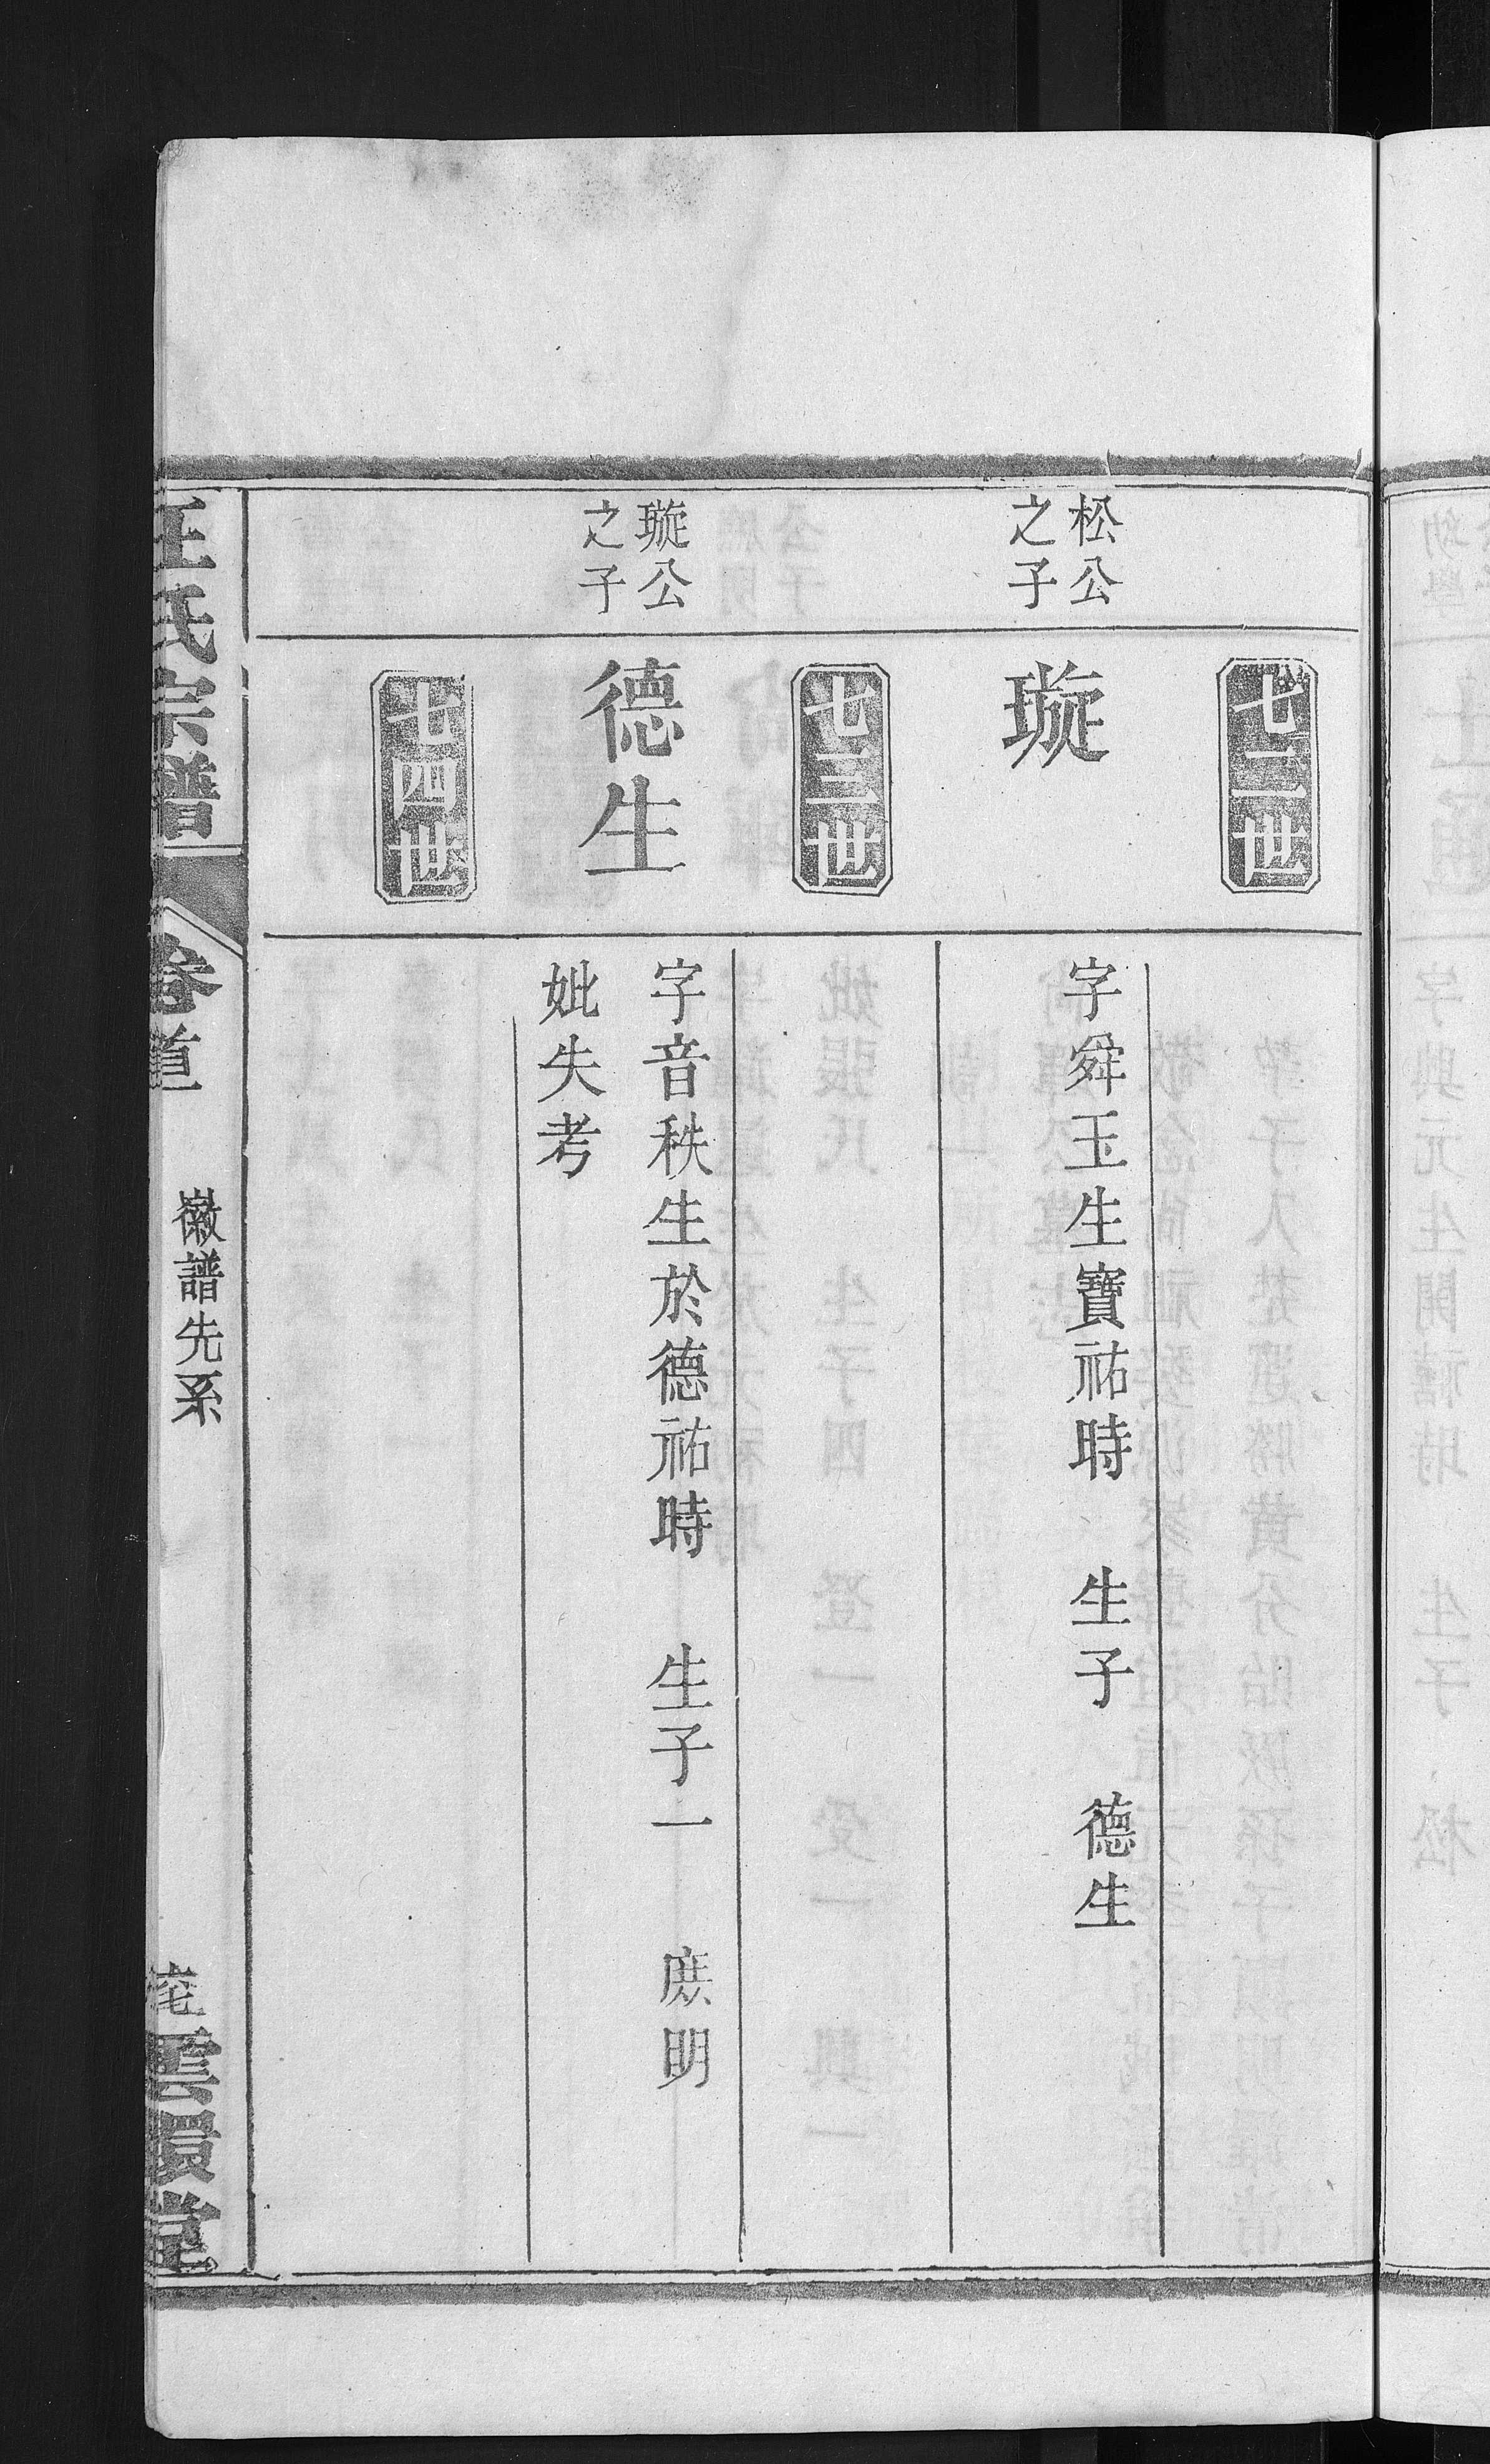 七二世
松公
之子
璇
字舜玉生寶祐時　生子　德生
七三世
璇公
之子
德生
字音秩生於德祐時　生子一　庶明
妣失考
七四世
氏宗譜
卷首
徽譜先系
雲環堂